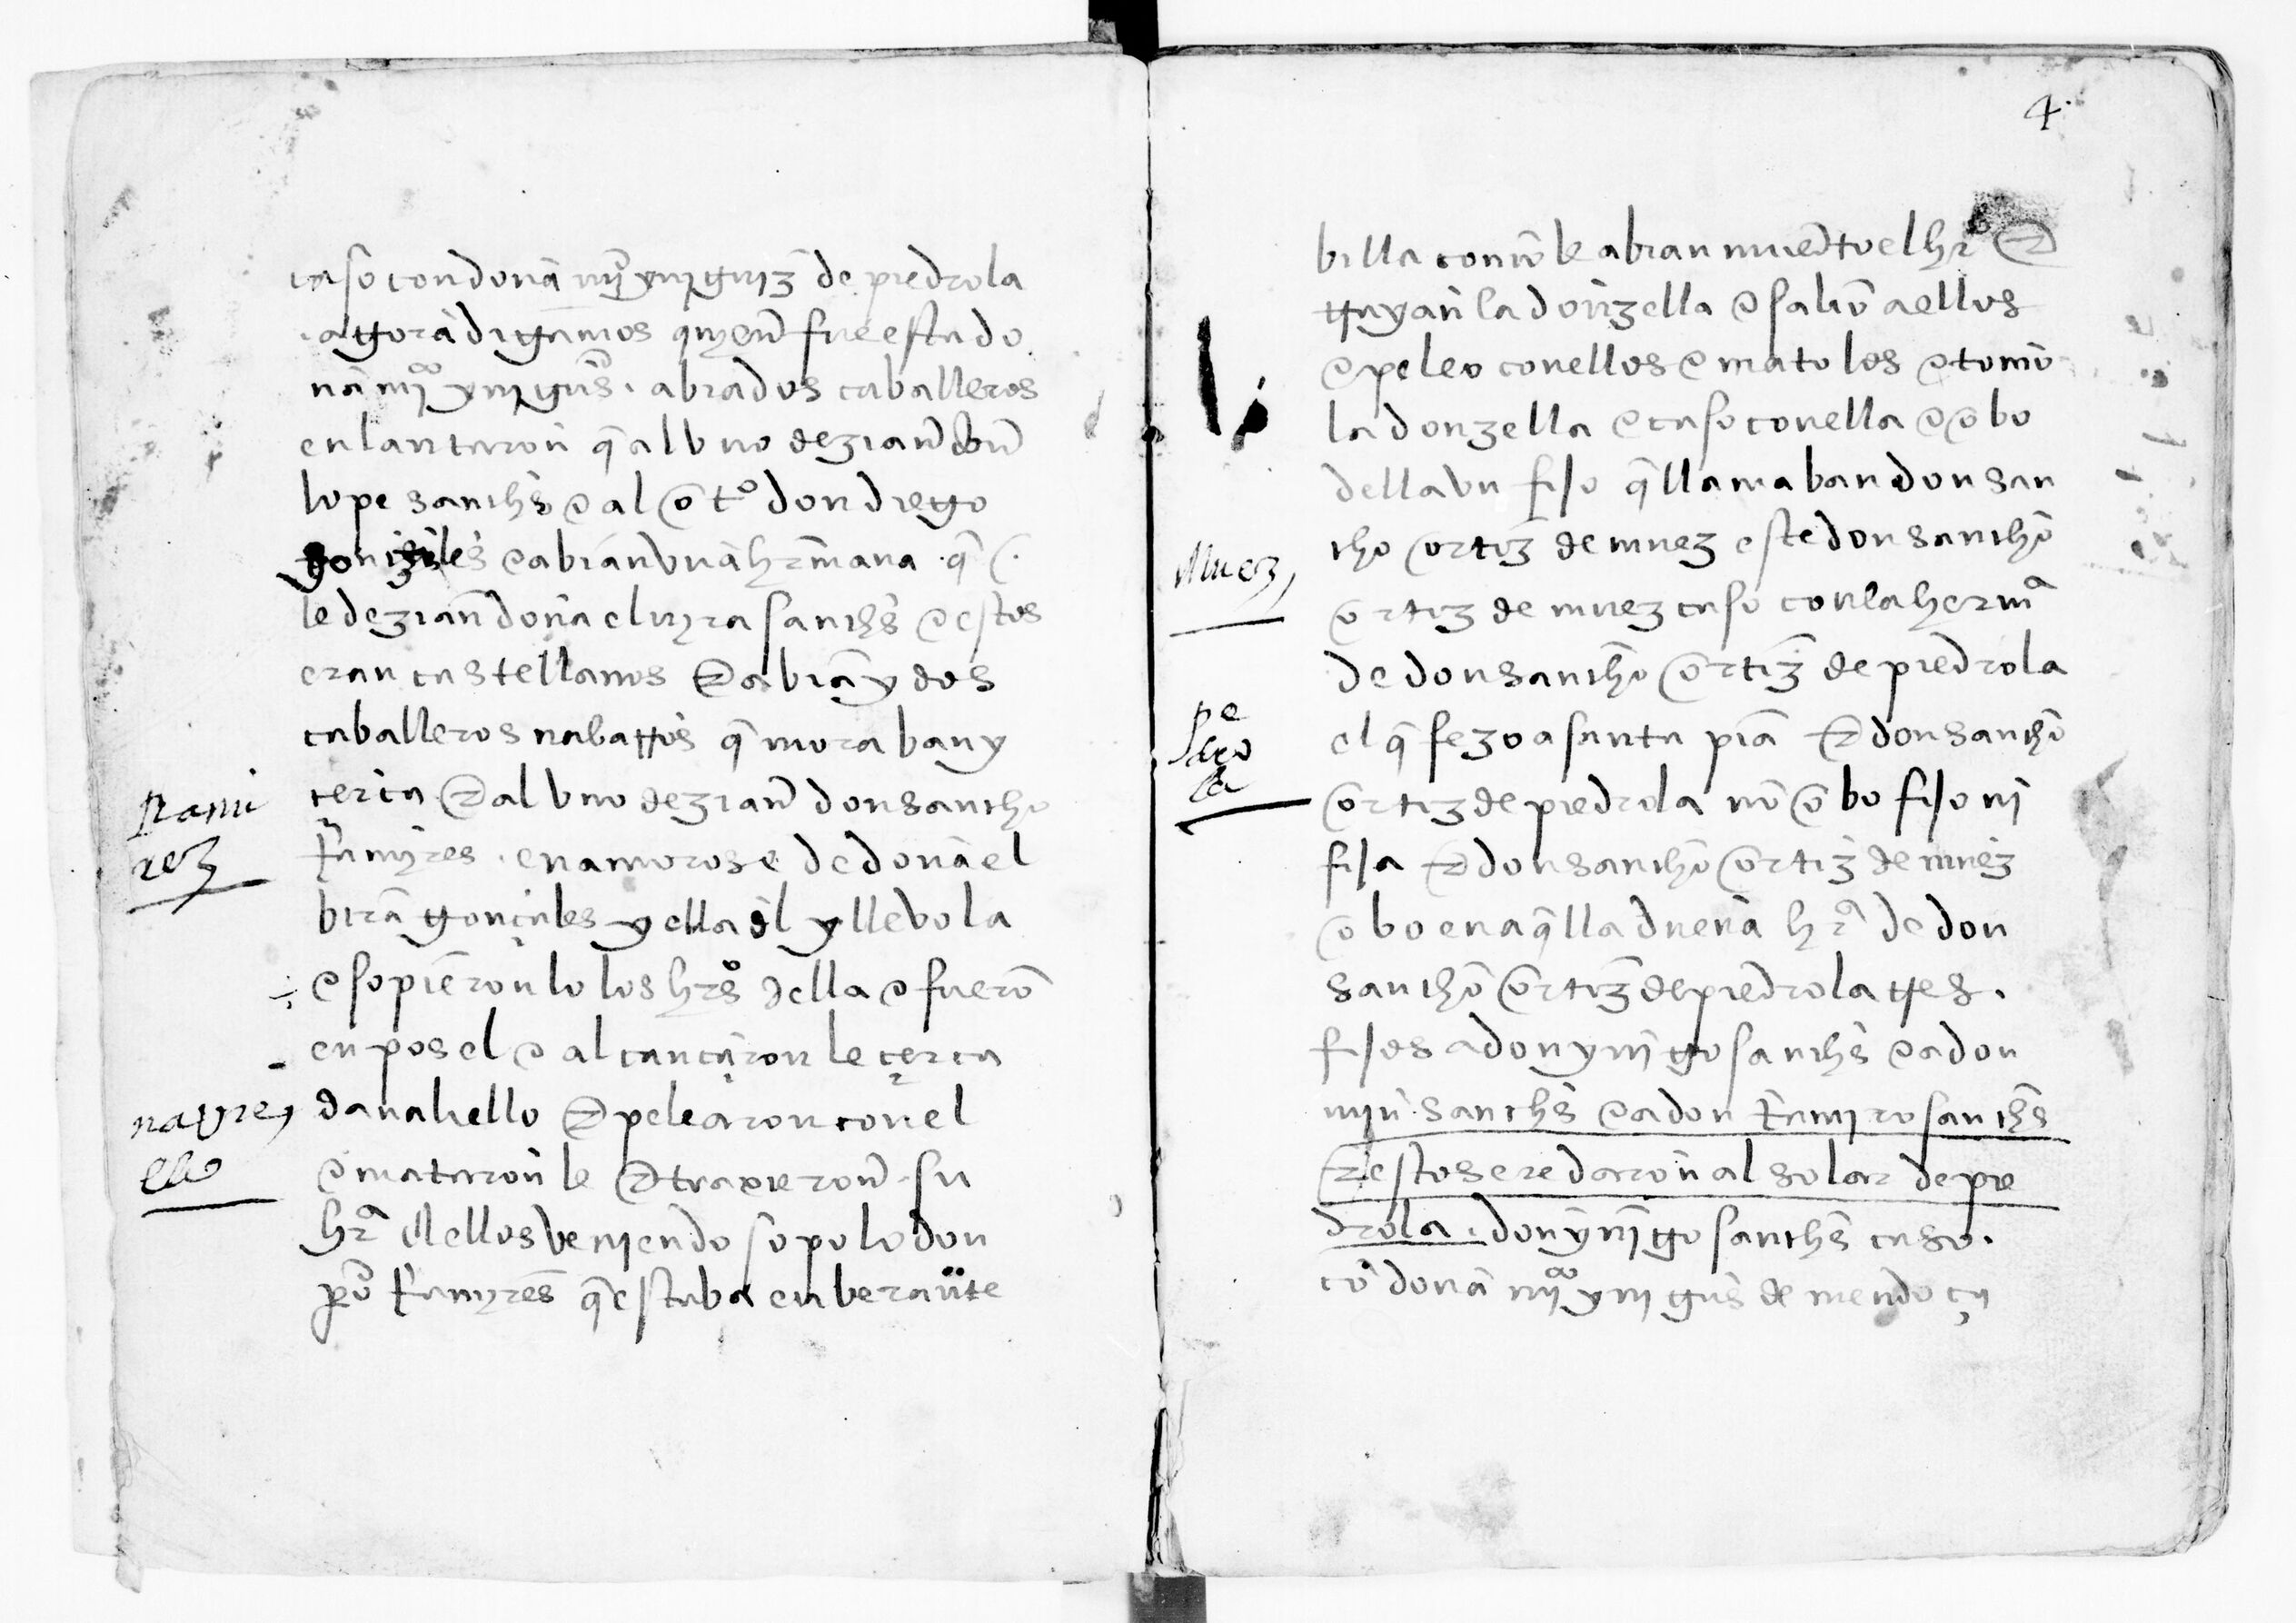 caso con dona mjª ynjguiz de piedrola
agora digamos quyen fue esta do
na mjª ynjgus. abia dos caballeros
en lantaron q̃ al vno dezian don
lope sanchs e al otº don diego
gonzales e abian vna hrmana q̃
le dezian dona eluyra sanchs e estos
eran castellanos e abia y dos
caballeros nabarros q̃ moraban y
cerca e al vno dezian don sancho
Ramires. enamorose de dona el
bira gonçales y ella del y llebola
e sopieronlo los hrºs della e fuerõ
en pos el e alcançaronle çerca
danahello e pelearon con el
e mataronle e traxieron su
hrª e ellos veniendo sopolo don
pº Ramyres q̃ estaba en berante
Rami
rez
naure
llo
4.
billa como le abian muerto el hrº e
trayan la donzella e salio a ellos
e peleo con ellos e matolos e tomo
la donzella e caso con ella e obo
della vn fijo q̃ llamaban don san
cho ortiz de muez este don sancho
ortiz de muez caso con la hermª
de don sancho ortiz de piedrola
el q̃ fezo a santa pia e don sancho
ortiz de piedrola no obo fijo nj
fija e don sancho ortiz de muez
obo en aq̃lla duena hrª de don
sancho ortiz de piedrola tres.
fijos a don ynjgo sanchs e a don
mjn. sanchs e a don Ramiro sanchs
e estos eredaron al solar de pie
drola. don ynjgo sanchs caso.
cõ dona mjª ynjgus de mendoça
Muez
Pe
dro
la